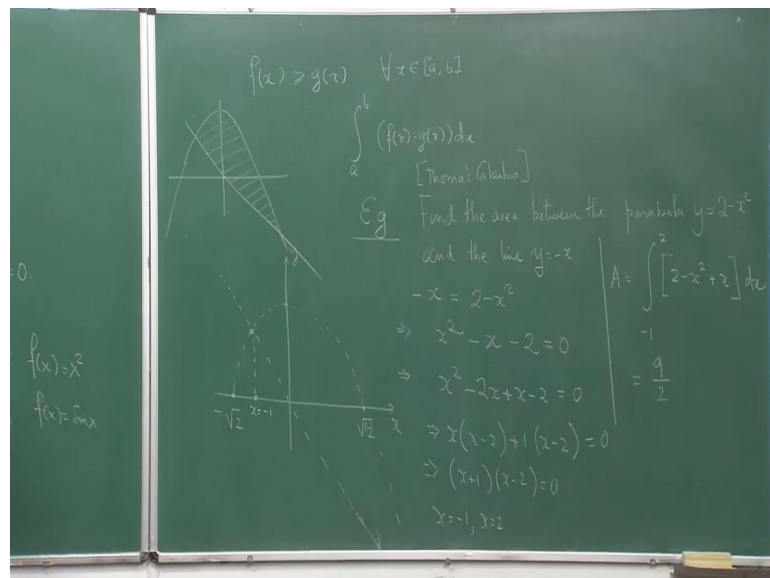 = 0.
f(x) = x²
f(x) = Sinx
f(x) ≥ g(x) ∀ x ∈ [a, b]
∫ₐᵇ (f(x) - g(x)) dx
[Thoma's Calculus]
Eg Find the area between the parabola y = 2 - x²
and the line y = -x
-x = 2 - x²
⇒ x² - x - 2 = 0
⇒ x² - 2x + x - 2 = 0
⇒ x(x-2) + 1(x-2) = 0
⇒ (x+1)(x-2) = 0
x = -1, x = 2
A = ∫₋₁² [2 - x² + x] dx
= 9/2
y
-√2
x=-1
√2
x